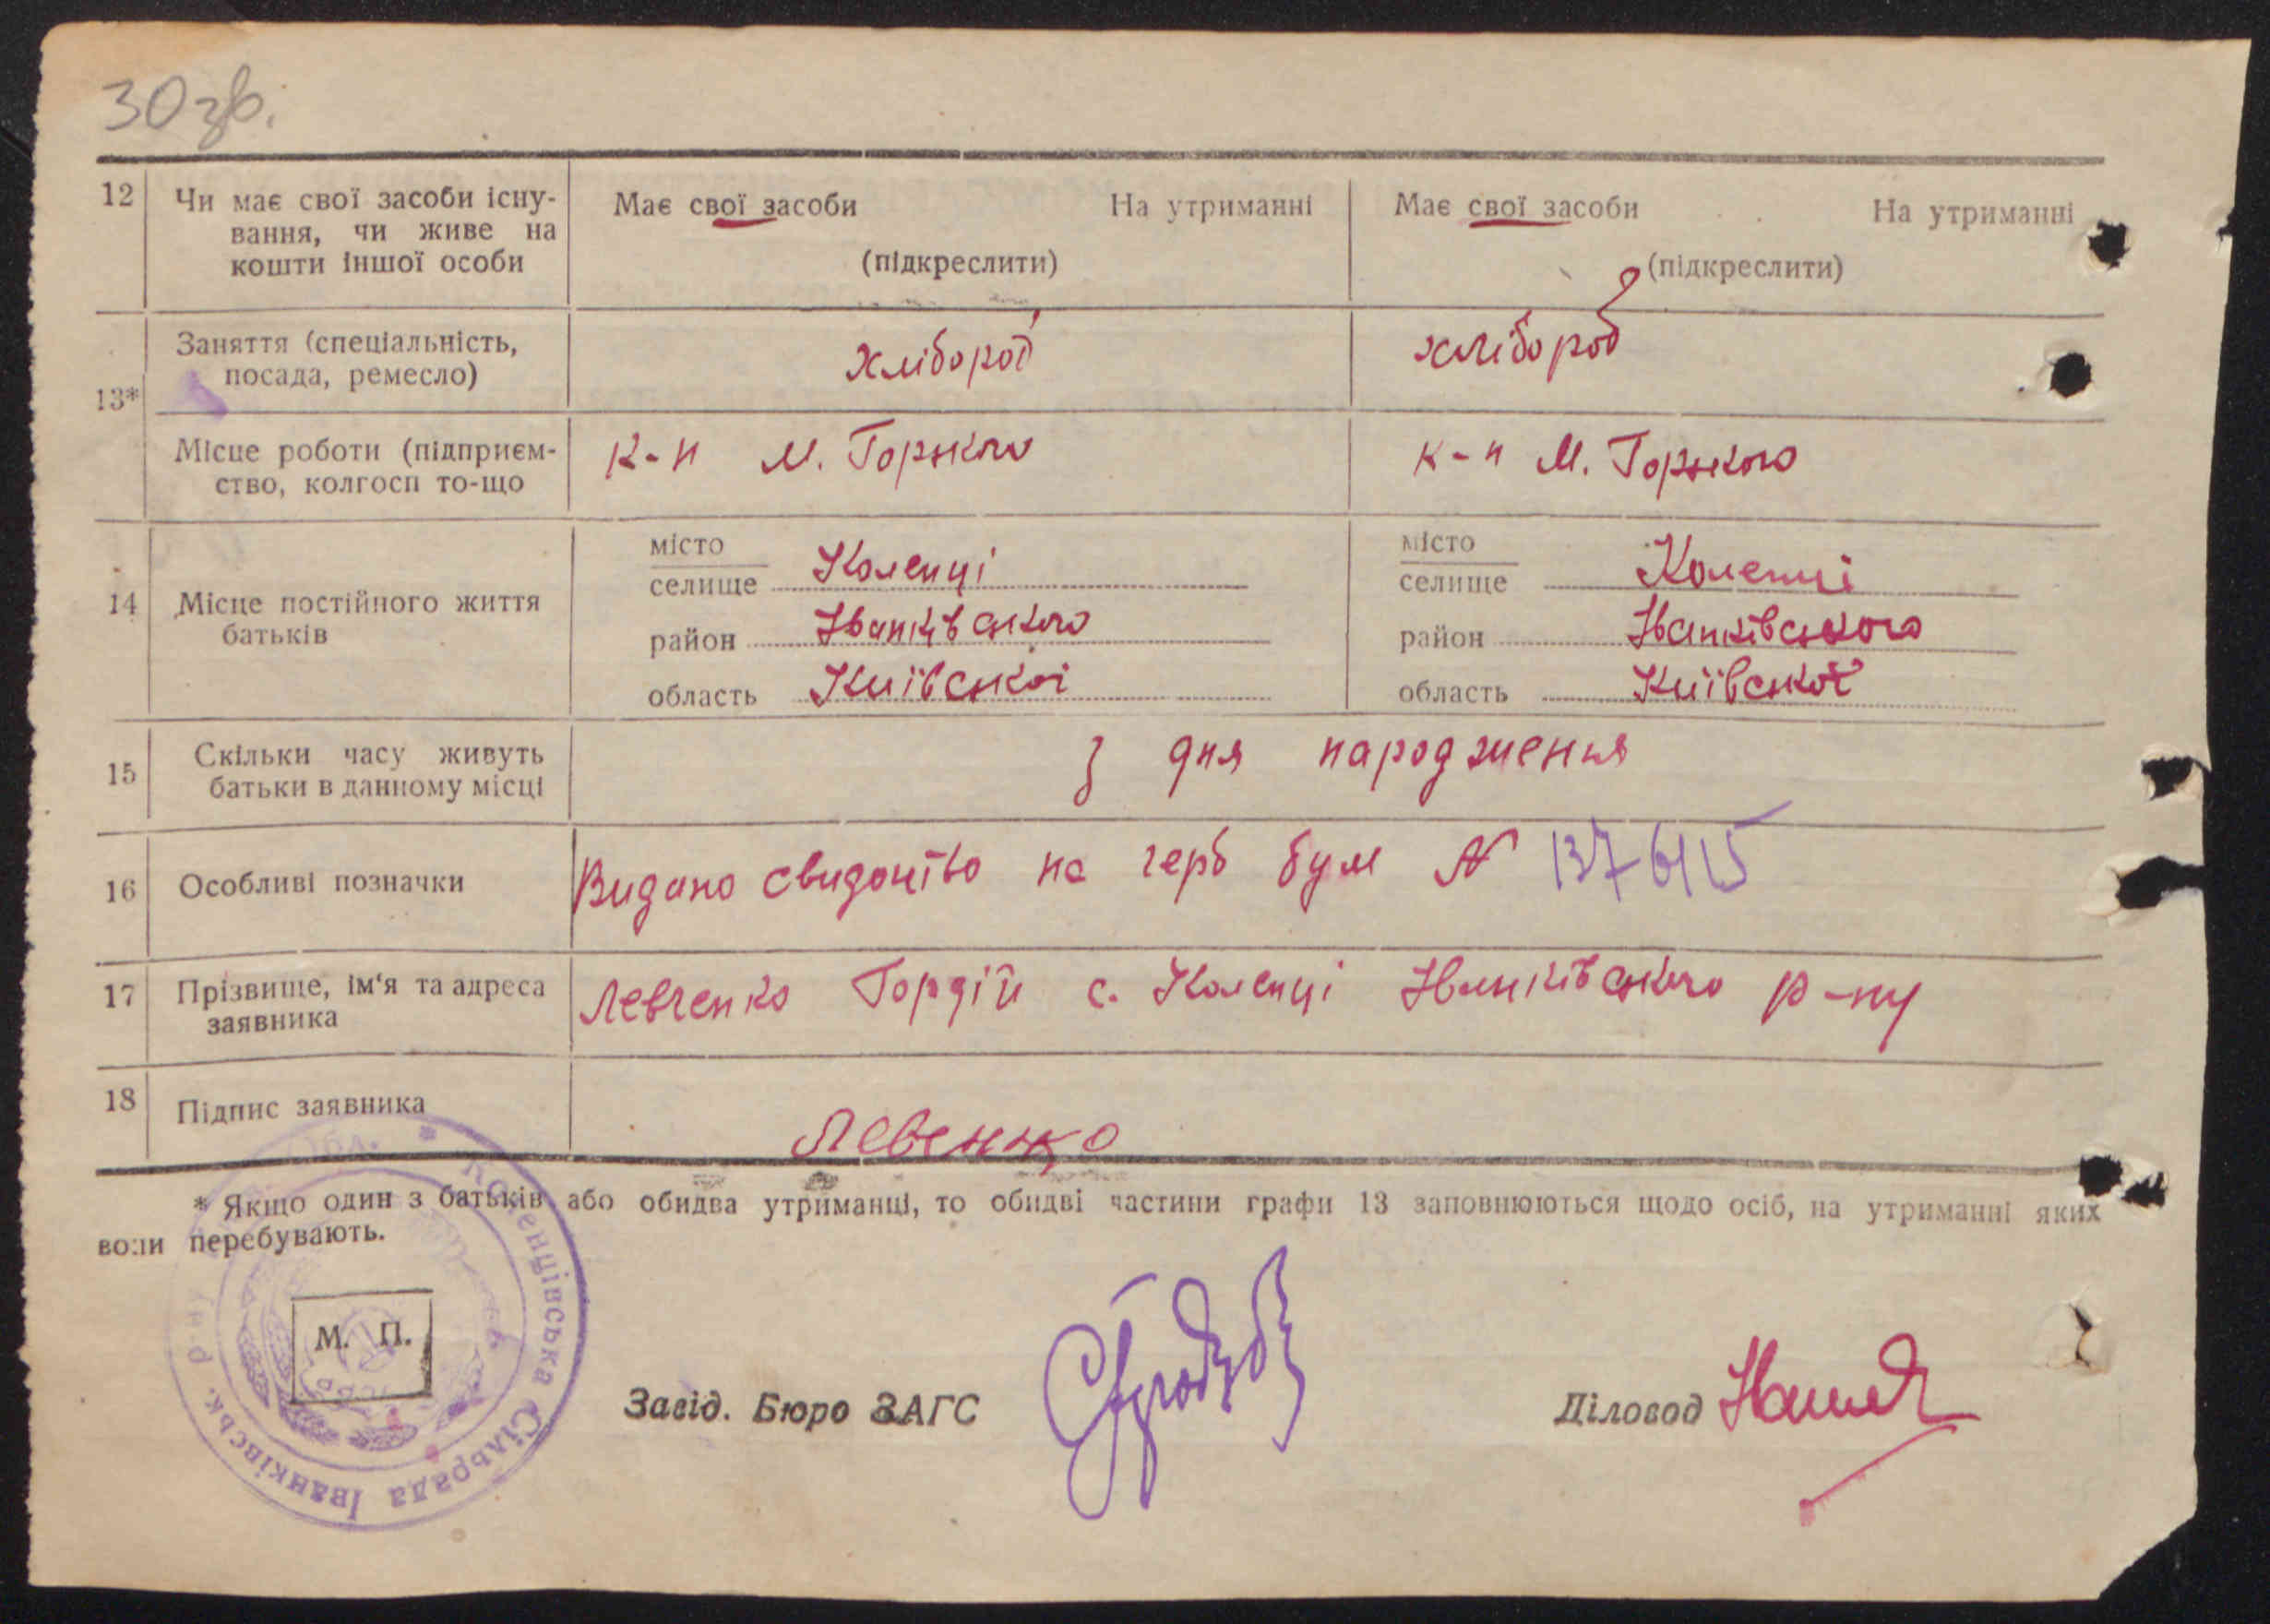 30зв.
12 Чи має свої засоби існу- Має свої засоби На утриманні Має свої засоби На утриманні
вання, чи живе на
кошти іншої особи (підкреслити) (підкреслити)
13* Заняття (спеціальність, хлібороб хлібороб
посада, ремесло)
Місце роботи (підприєм- к-п М. Горького к-п М. Горького
ство, колгосп то-що
14 Місце постійного життя
батьків
місто
селище Коленці
район Іванківського
область Київської
місто
селище Коленці
район Іванківського
область Київської
15 Скільки часу живуть З дня народження
батьки в данному місці
16 Особливі позначки Видано свидоцтво на герб бум №
17 Прізвище, ім'я та адреса Левченко Гордій с. Коленці Іванківського р-ну
заявника
18 Підпис заявника Левенко
* Якщо один з батьків або обидва утриманці, то обидві частини графи 13 заповнюються щодо осіб, на утриманні яких
вони перебувають.
М. П.
Коленцівська Сільрада Іванківськ. р-ну Обл.
Завід. Бюро ЗАГС Діловод